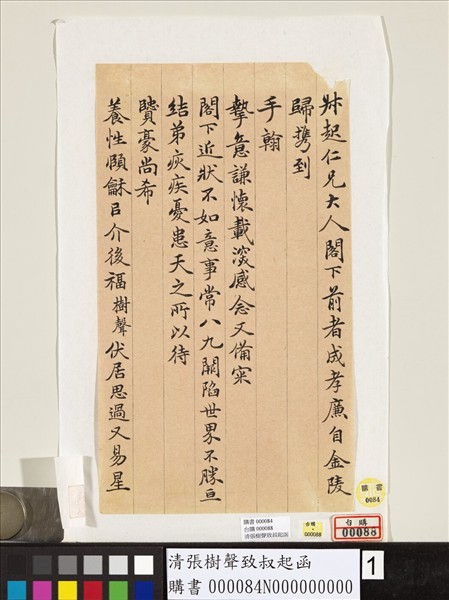 叔起仁兄大人閣下前者成孝廉自金陵
歸携到
手翰
摯意謙懷載深感念又備宷
閣下近狀不如意事常八九闕陷世界不勝亘
結弟疢疾憂患天之所以待
賢豪尚希
養性頤龢㠯介後福樹聲伏居思過又易星
購書
0084
購書 000084
台購 000088
清張樹聲致叔起函
台購
000088
台購
00088
清張樹聲致叔起函
購書 000084N000000000
1